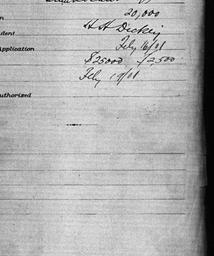 20,000
n
dent H. H. Dickey
Application Feby 16/01
$25000 12,500
Feby 19/01
uthorized